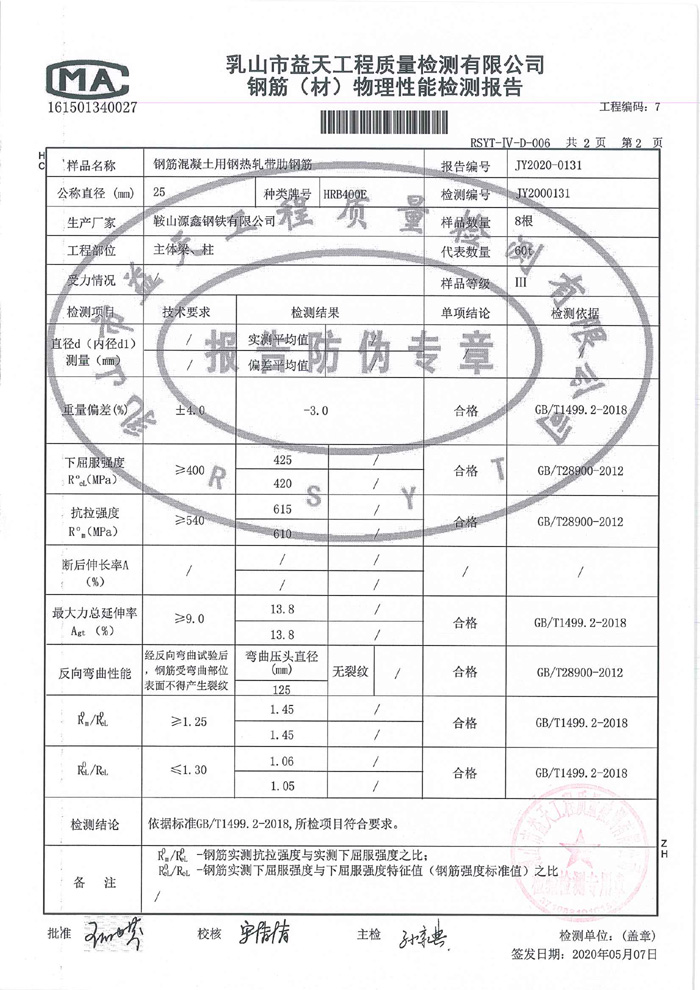 CMA
161501340027
乳山市益天工程质量检测有限公司
钢筋（材）物理性能检测报告
工程编码：7
RSYT-Ⅳ-D-006 共 2 页 第 2 页
HC
样品名称 钢筋混凝土用钢热轧带肋钢筋 报告编号 JY2020-0131
公称直径 (mm) 25 种类牌号 HRB400E 检测编号 JY2000131
生产厂家 鞍山源鑫钢铁有限公司 样品数量 8根
工程部位 主体梁、柱 代表数量 60t
受力情况 / 样品等级 III
检测项目 技术要求 检测结果 单项结论 检测依据
直径d（内径d1）测量（mm） / 实测平均值 / / /
/ 偏差平均值 /
重量偏差(%) ±4.0 -3.0 合格 GB/T1499.2-2018
下屈服强度 R°eL(MPa) ≥400 425 / 合格 GB/T28900-2012
420 /
抗拉强度 R°m(MPa) ≥540 615 / 合格 GB/T28900-2012
610 /
断后伸长率A (%) / / / / /
/ /
最大力总延伸率 Agt （%） ≥9.0 13.8 / 合格 GB/T1499.2-2018
13.8 /
反向弯曲性能 经反向弯曲试验后，钢筋受弯曲部位表面不得产生裂纹 弯曲压头直径(mm) 无裂纹 / 合格 GB/T28900-2012
125
R°m/R°eL ≥1.25 1.45 / 合格 GB/T1499.2-2018
1.45 /
R°eL/ReL ≤1.30 1.06 / 合格 GB/T1499.2-2018
1.05 /
检测结论 依据标准GB/T1499.2-2018,所检项目符合要求。
备 注 R°m/R°eL -钢筋实测抗拉强度与实测下屈服强度之比；
R°eL/ReL -钢筋实测下屈服强度与下屈服强度特征值（钢筋强度标准值）之比
/
ZH
乳山市益天工程质量检测有限公司
报告防伪专章
RSYT
批准 校核 主检 检测单位：（盖章）
签发日期：2020年05月07日